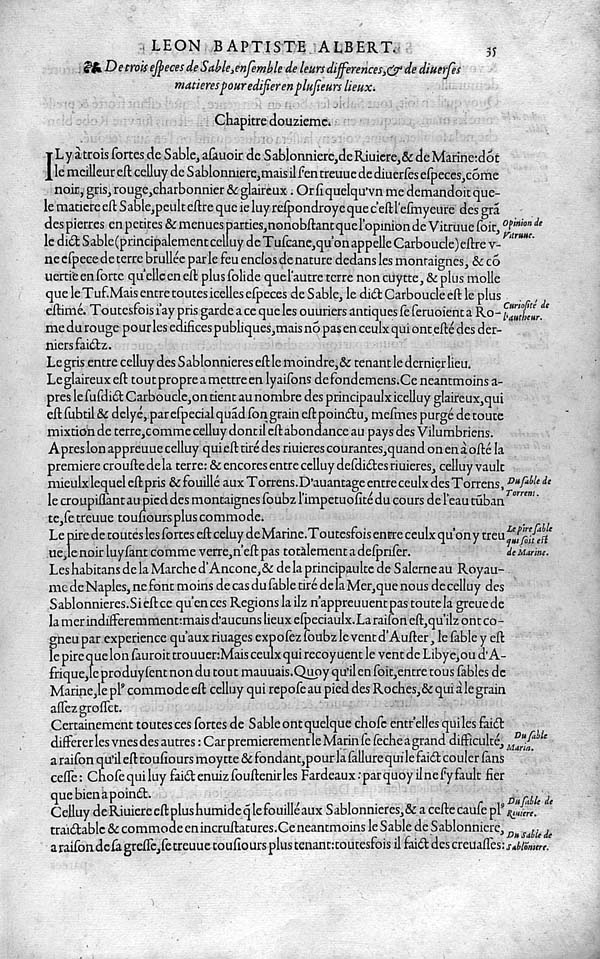 LEON BAPTISTE ALBERT. 35
De trois especes de Sable, ensemble de leurs differences, & de diverses
matieres pour edifier en plusieurs lieux.
Chapitre douzieme.
IL y à trois sortes de Sable, asauoir de Sablonniere, de Riuiere, & de Marine: dōt
le meilleur est celluy de Sablonniere, mais il s'en treuue de diuerses especes, cōme
noir, gris, rouge, charbonnier & glaireux. Or si quelqu'vn me demandoit que-
le matiere est Sable, peult estre que ie luy respondroye que c'est l'esmyeure des grā
des pierres en petites & menues parties, nonobstant que l'opinion de Vitruue soit,
Opinion de
Vitruue.
le dict Sable (principalement celluy de Tuscane, qu'on appelle Carboucle) estre v-
ne espece de terre brullée par le feu enclos de nature dedans les montaignes, & cō
uertie en sorte qu'elle en est plus solide que l'autre terre non cuytte, & plus molle
que le Tuf. Mais entre toutes icelles especes de Sable, le dict Carboucle est le plus
estimé. Toutesfois i'ay pris garde a ce que les ouuriers antiques se seruoient a Ro-
Curiosité de
l'autheur.
me du rouge pour les edifices publiques, mais nō pas en ceulx qui ont esté des der-
niers faictz.
Le gris entre celluy des Sablonnieres est le moindre, & tenant le dernier lieu.
Le glaireux est tout propre a mettre en lyaisons de fondemens. Ce neantmoins a-
pres le susdict Carboucle, on tient au nombre des principaulx icelluy glaireux, qui
est subtil & delyé, par especial quād son grain est poinctu, mesmes purgé de toute
mixtion de terre, comme celluy dont il est abondance au pays des Vilumbriens.
Apres lon appreuue celluy qui est tiré des riuieres courantes, quand on en à osté la
premiere crouste de la terre: & encores entre celluy desdictes riuieres, celluy vault
mieulx lequel est pris & fouillé aux Torrens. D'auantage entre ceulx des Torrens,
Du sable de
Torrent.
le croupissant au pied des montaignes soubz l'impetuosité du cours de l'eau tūban
te, se treuue tousiours plus commode.
Le pire de toutes les sortes est celuy de Marine. Toutesfois entre ceulx qu'on y treu
Le pire sable
qui soit est
de Marine.
ue, le noir luysant comme verre, n'est pas totalement a despriser.
Les habitans de la Marche d'Ancone, & de la principaulte de Salerne au Royau-
me de Naples, ne font moins de cas du sable tiré de la Mer, que nous de celluy des
Sablonnieres. Si est ce qu'en ces Regions la ilz n'appreuuent pas toute la greue de
la mer indifferemment: mais d'aucuns lieux especiaulx. La raison est, qu'ilz ont co-
gneu par experience qu'aux riuages exposez soubz le vent d'Auster, le sable y est
le pire que lon sauroit trouuer: Mais ceulx qui recoyuent le vent de Libye, ou d'A-
frique, le produysent non du tout mauuais. Quoy qu'il en soit, entre tous sables de
Marine, le plꝰ commode est celluy qui repose au pied des Roches, & qui à le grain
assez grosset.
Certainement toutes ces sortes de Sable ont quelque chose entr'elles qui les faict
differer les vnes des autres: Car premierement le Marin se seche a grand difficulté,
Du sable
Marin.
a raison qu'il est tousiours moytte & fondant, pour la sallure qui le faict couler sans
cesse: Chose qui luy faict enuiz soustenir les Fardeaux: par quoy il ne s'y fault fier
que bien à poinct.
Celluy de Riuiere est plus humide q̃ le fouillé aux Sablonnieres, & a ceste cause plꝰ
Du sable de
Riuiere.
traictable & commode en incrustatures. Ce neantmoins le Sable de Sablonniere,
a raison de sa gresse, se treuue tousiours plus tenant: toutesfois il faict des creuasses:
Du Sable de
Sablōniere.